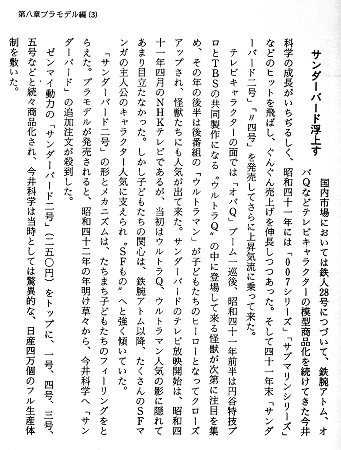 第八章プラモデル編(3)
サンダーバード浮上す
国内市場においては鉄人28号につづいて、鉄腕アトム、オ
バQなどテレビキャラクターの模型商品化を続けてきた今井
科学の成長がいちぢるしく、昭和四十一年には「007シリーズ」「サブマリンシリーズ」
などのヒットを飛ばし、ぐんぐん売上げを伸長しつつあった。そして四十一年末「サンダ
ーバード二号」「〃四号」を発売してさらに上昇気流に乗って来た。
テレビキャラクターの面では「オバQ」ブーム一巡後、昭和四十一年前半は円谷特技プ
ロとTBSの共同製作になる〝ウルトラQ〟の中に登場して来る怪獣が次第に注目を集
め、その年の後半は後番組の「ウルトラマン」が子どもたちのヒーローとなってクローズ
アップされ、怪獣たちにも人気が出て来た。サンダーバードのテレビ放映開始は、昭和四
十一年四月のNHKテレビであるが、当初はウルトラQ、ウルトラマン人気の影に隠れて
あまり目立たなかった。しかし子どもたちの関心は、鉄腕アトム以降、たくさんのSFマ
ンガの主人公のキャラクター人気に支えられ、〝SFもの〟へと強く傾いていた。
「サンダーバード二号」の形とメカニズムは、たちまち子どもたちのフィーリングをと
らえた。プラモデルが発売されると、昭和四十二年の年明け草々から、今井科学へ「サン
ダーバード」の追加注文が殺到した。
ゼンマイ動力の「サンダーバード二号」(二五〇円)をトップに、一号、四号、三号、
五号などと続々商品化され、今井科学は当時としては驚異的な、日産四万個のフル生産体
制を敷いた。